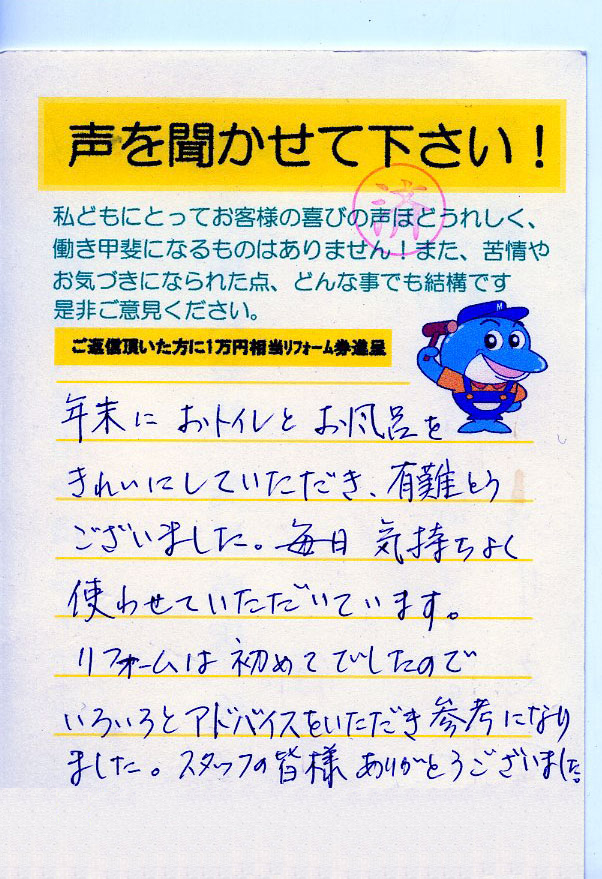 声を聞かせて下さい！
済
私どもにとってお客様の喜びの声ほどうれしく、
働き甲斐になるものはありません！また、苦情や
お気づきになられた点、どんな事でも結構です
是非ご意見ください。
ご返信頂いた方に1万円相当リフォーム券進呈
M
年末に おトイレと お風呂を
きれいにしていただき、有難とう
ございました。毎日 気持ちよく
使わせていただいています。
リフォームは 初めて でしたので
いろいろとアドバイスをいただき 参考になり
ました。スタッフの皆様 ありがとうございました。